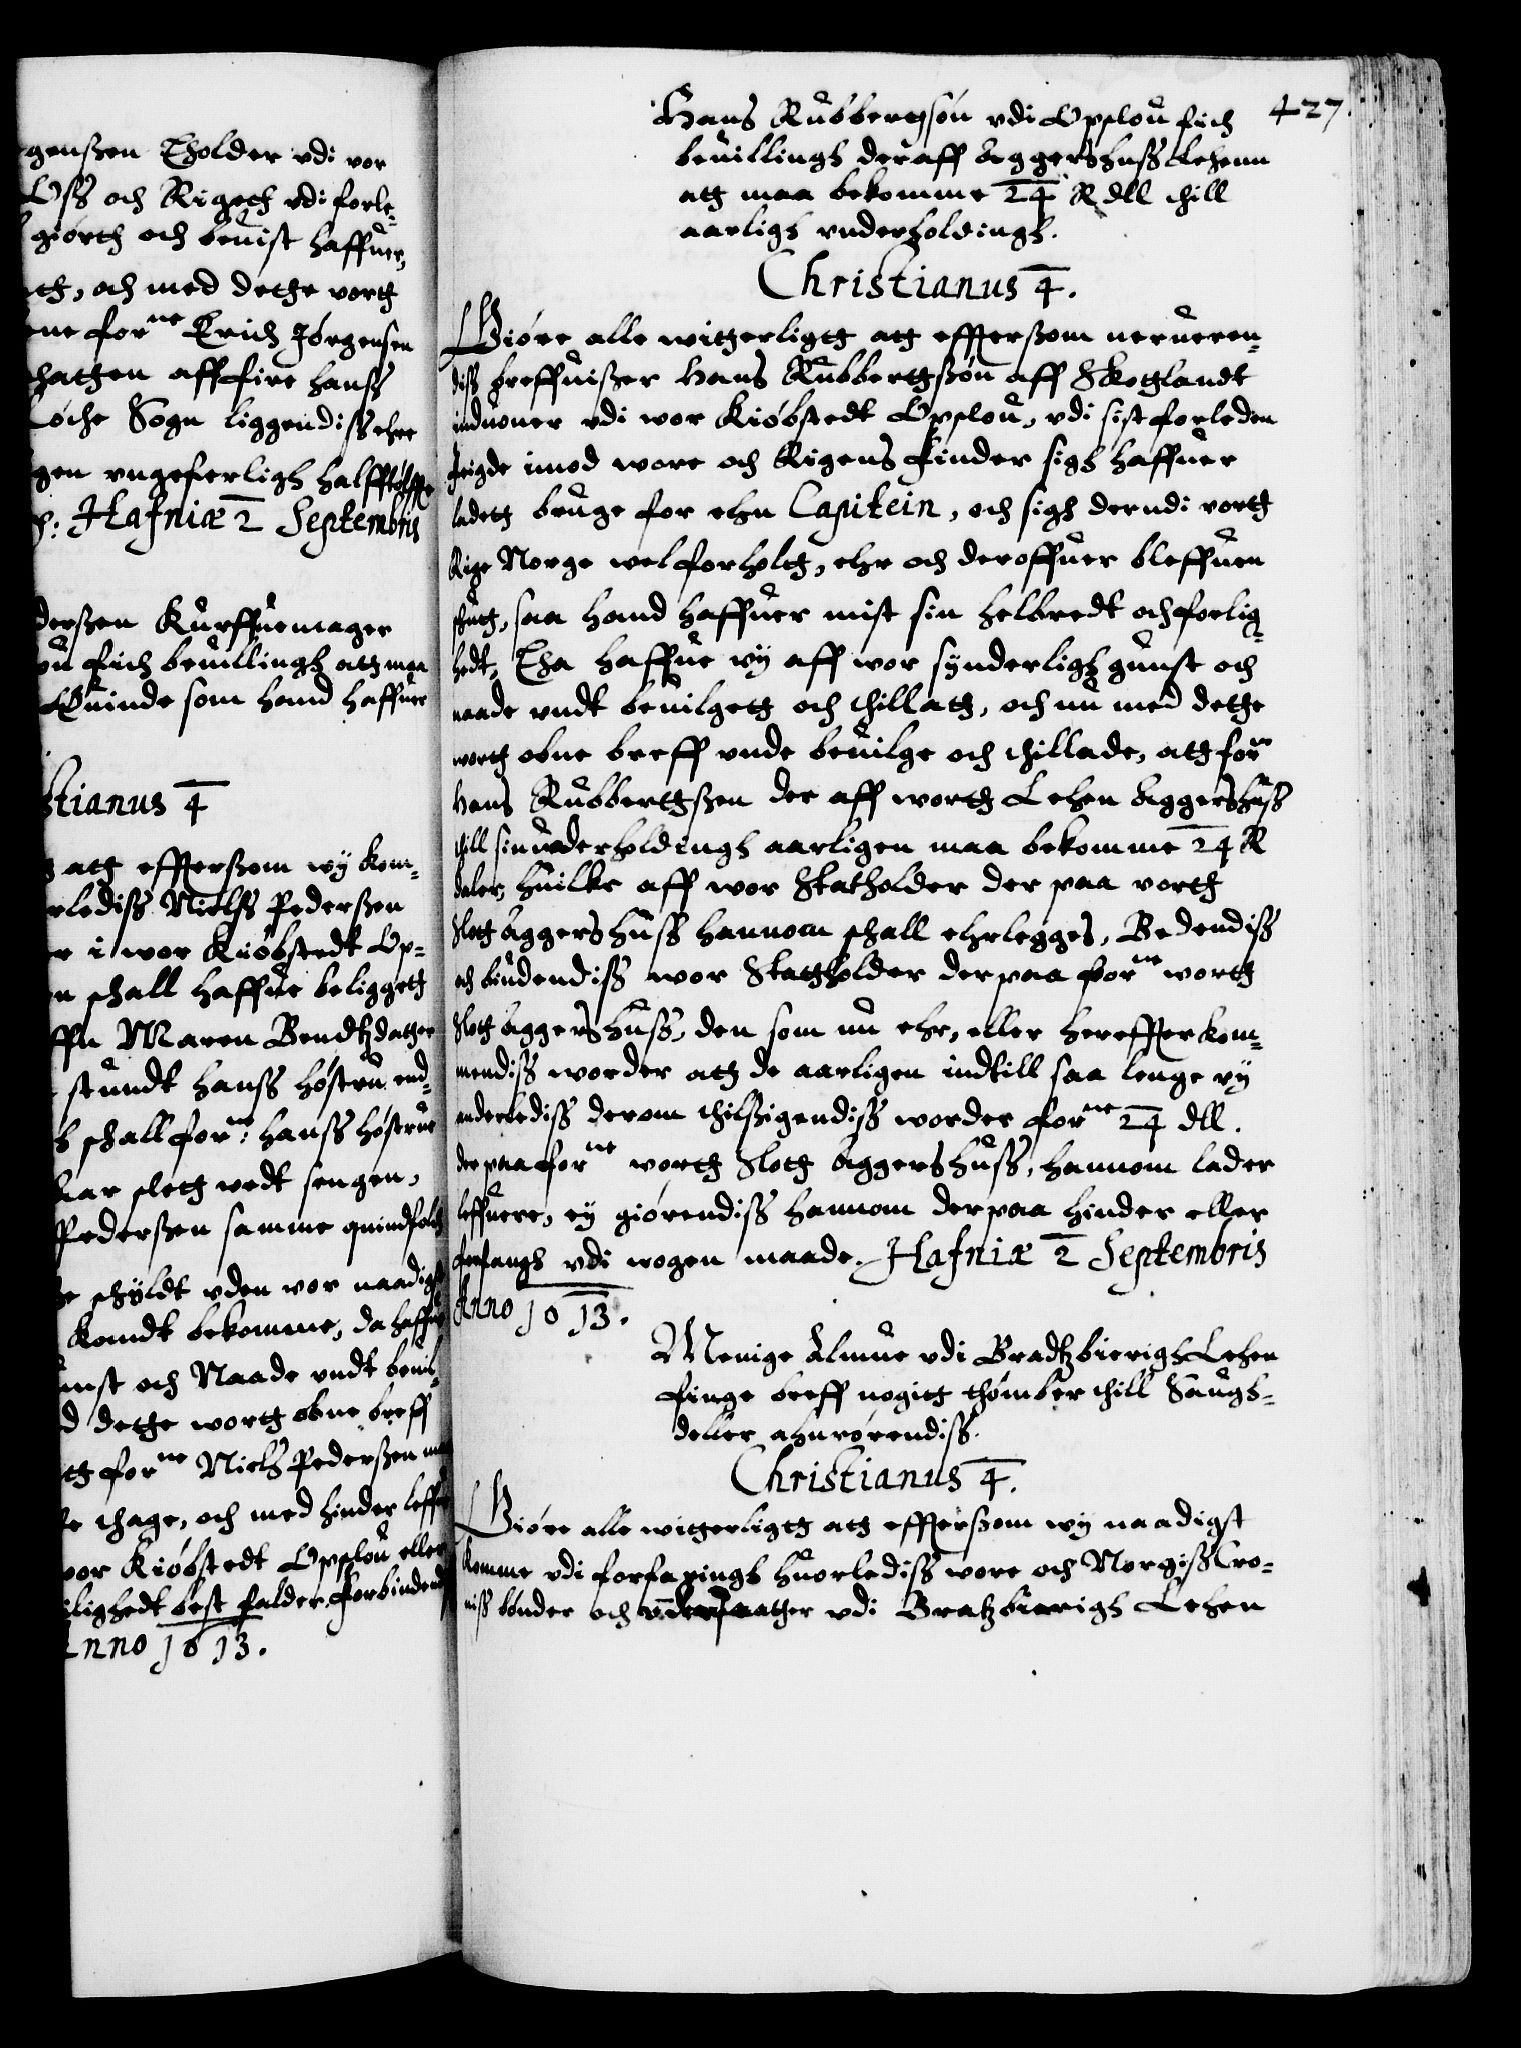 genßen Tholder vdi vor
Oss och Riget vdi forle-
giørth och beuist haffuer,
th, och med dette vorth
ene forne Erich Jørgensen
schatthen aff fire hanss
Løche Sogn liggendiss ehre
gen vngeferligh halfftølffte
Hafniæ 2 Septembris
derßen Kurffuemager
ou fich beuillingh ath maa
Quinde som hand haffuer
stianus 4
ath effterßom wy kom-
rlediss Nielss Pederßen
er i wor Kiøbstedt Op-
n schall haffue beliggeth
ffn Maren Bendtzdatter
stundt hanss høstru end-
schall forne: hanss høstrue
har sleth wedt sengen,
Pederßen samme quindfolch
e schyldt vden vor naadigst
komdt bekomme, da haffue
unst och Naade vndt beuil-
d dette worth obne breff
th forne Niels Pederßen maa
te thage, och med hinder leffue
vor Kiøbstedt Opslou eller
ilighedt best falder, Forbindendiss
Anno 1613.
427.
Hans Rubbertsøn vdi Opslou fich
beuillingh der aff Aggershuss Lehenn
ath maa bekomme 24 R dll thill
aarligh vnderholdingh.
Christianus 4.
Giøre alle witherligth ath effterßom nerueren-
diss breffuißer Hans Rubberthßøn aff Skotlandt
induoner vdi wor Kiøbstedt Opslou, vdi sist forleden
feigde imod wore och Rigens fiender sigh haffuer
ladeth bruge for ehn Capitein, och sigh der udi vorth
Rige Norge wel forholth, ehr och deroffuer bleffuen
schuth, saa hand haffuer mist sin helbredt och førlig-
hedt, Tha haffue wy aff wor synderligh gunst och
naade vndt beuilgeth och thillath, och nu med dette
worth obne breff vnde beuilge och thillade, ath forne
Hans Rubberthßen der aff worth Lehen Aggershuss
thill sin vnderholdingh aarligen maa bekomme 24 R
daler, huilke aff wor Statholder der paa vorth
Sloth Aggershuss hannom schall ehrlegges, Bedendiss
och biudendiss wor Stathholder der paa forne worth
Sloth Aggershuss, den som nu ehr, eller hereffter kom-
mendiss worder ath de aarligen indtill saa lenge vy
anderlediss derom thilsigendiss worder forne 24 dll.
der paa forne worth Sloth Aggershuss, hannom lader
leffuere, ey giørendiss hannom der paa hinder eller
forfangh vdi nogen maade. Hafniæ 2 Septembris
Anno 1613.
Menige Almue vdi Bradtzbierigh Lehen
finge breff nogit thømber thill Saugh-
deller ahnrørendiss.
Christianus 4.
Giøre alle witherligth ath effterßom wy naadigst
komme vdi forfaringh huorlediss wore och Norgiss Cro-
niss bønder och vndersaather vdi Bratzbierigh Lehen